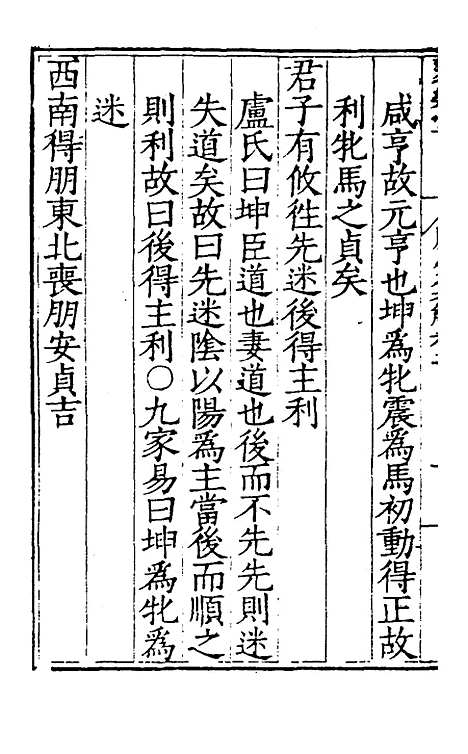 咸亨故元亨也坤為牝震為馬初動得正故
利牝馬之貞矣
君子有攸徃先迷後得主利
盧氏曰坤臣道也妻道也後而不先先則迷
失道矣故曰先迷陰以陽為主當後而順之
則利故曰後得主利○九家易曰坤為牝為
迷
西南得朋東北喪朋安貞吉